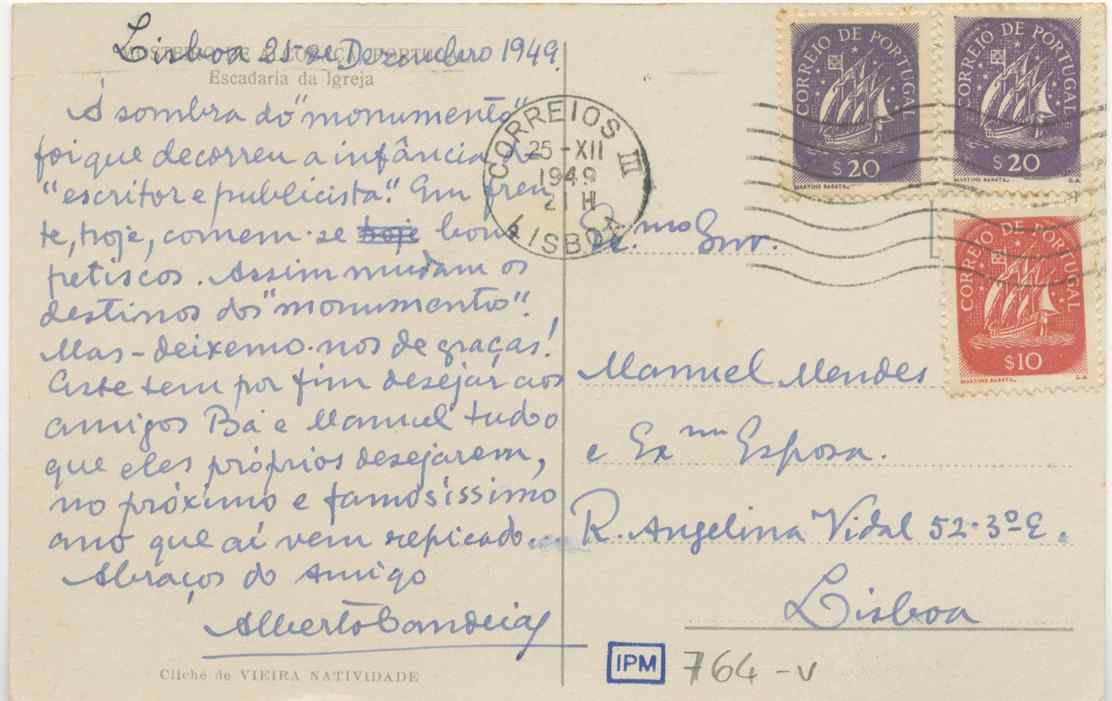 Lisboa 21 de Dezembro 1949
MOSTEIRO DE ALCOBAÇA PORTUGAL
Escadaria da Igreja
À sombra do "monumento"
foi que decorreu a infância do
"escritor e publicista". Em fren-
te, hoje, comem-se hoje bons
petiscos. Assim mudam os
destinos dos "monumentos".
Mas-deixemo-nos de graças!
Este tem por fim desejar aos
amigos Bá e Manuel tudo
que eles próprios desejarem,
no próximo e famosíssimo
ano que aí vem repicado...
Abraços do amigo
Alberto Candeias
Cliché de VIEIRA NATIVIDADE
CORREIOS III
25-XII
1949
21 H
LISBOA
CORREIO DE PORTUGAL
$20
MARTINS BARATA
CORREIO DE PORTUGAL
$20
MARTINS BARATA
CORREIO DE PORTUGAL
$10
MARTINS BARATA
Ex.mo Snr.
Manuel Mendes
e Exma Esposa.
R. Angelina Vidal 52-3º E.
Lisboa
IPM 764-V